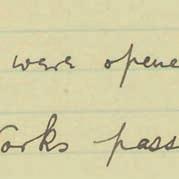 were opene
orks pass